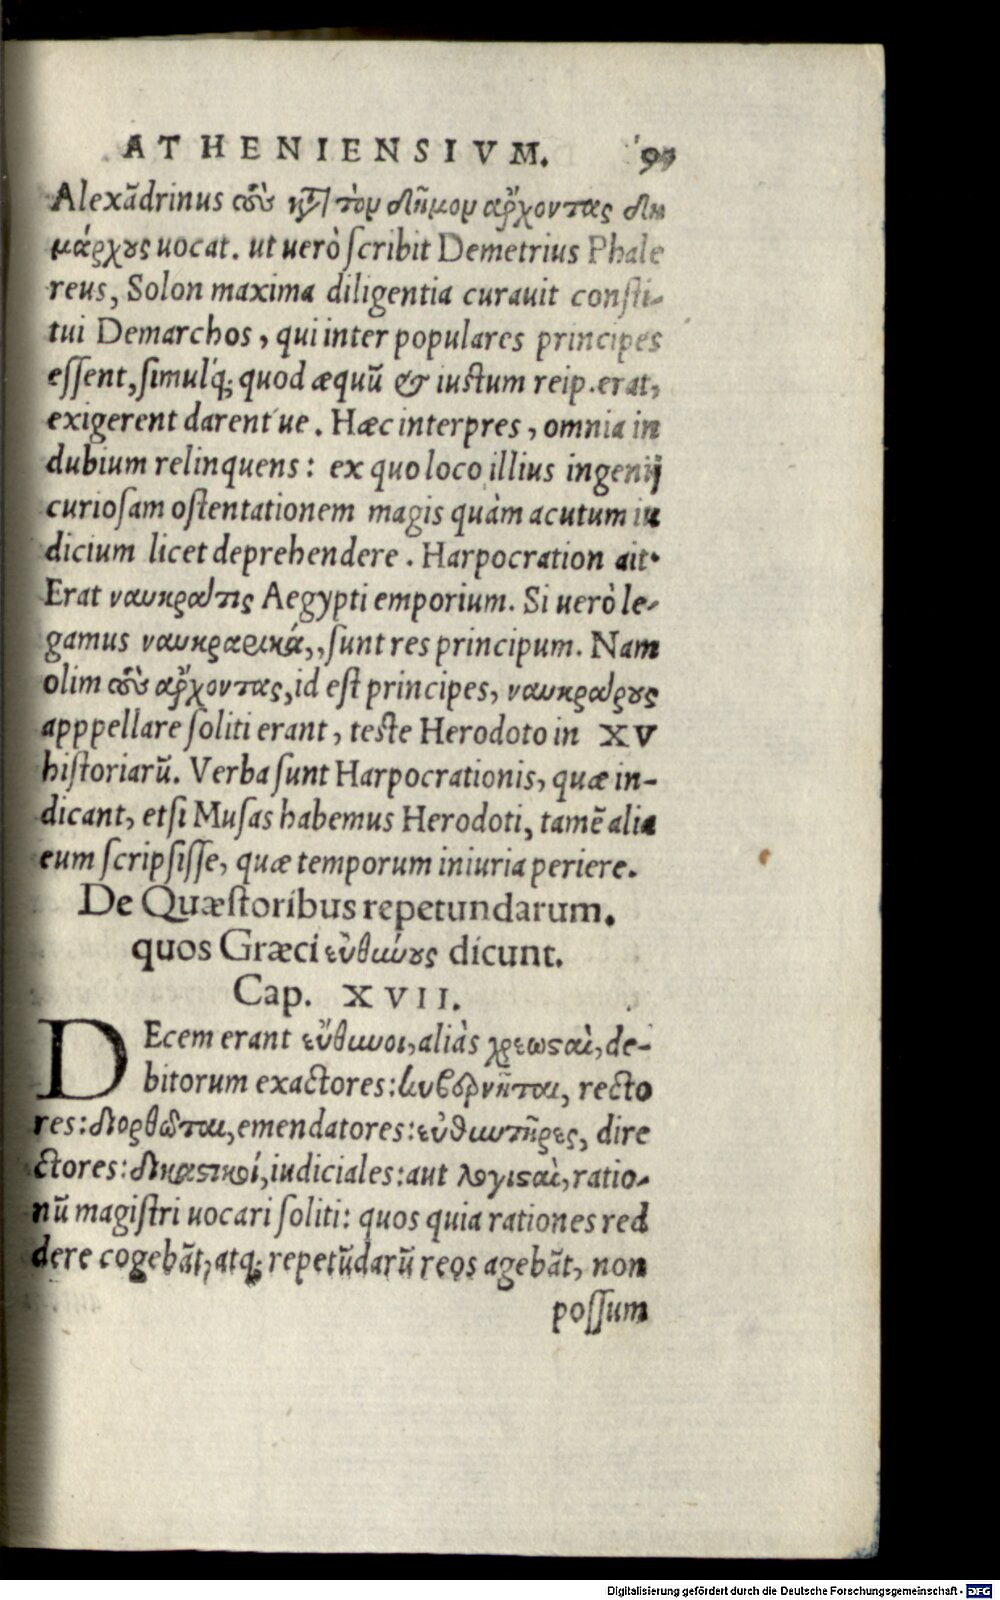 ATHENIENSIVM. 97
Alexãdrinus τοὺς κατὰ τὸν δῆμον ἄρχοντας δη
μάρχους uocat. ut uerò ſcribit Demetrius Phale
reus, Solon maxima diligentia curauit conſti-
tui Demarchos, qui inter populares principes
eſſent, ſimulq́; quod æquũ & iustum reip. erat,
exigerent darent ue. Hæc interpres, omnia in
dubium relinquens: ex quo loco illius ingenij
curioſam oſtentationem magis quàm acutum iu
dicium licet deprehendere. Harpocration ait.
Erat ναυκρατις Aegypti emporium. Si uerò le-
gamus ναυκραρικά,, ſunt res principum. Nam
olim τοὺς ἄρχοντας, id eſt principes, ναυκράρους
apppellare ſoliti erant, teſte Herodoto in XV
hiſtoriarũ. Verba ſunt Harpocrationis, quæ in-
dicant, etſi Muſas habemus Herodoti, tamẽ alia
eum ſcripſiſſe, quæ temporum iniuria periere.
De Quæſtoribus repetundarum.
quos Græci εὐθύνους dicunt.
Cap. XVII.
DEcem erant εὔθυνοι, aliàs χρεωςαὶ, de-
bitorum exactores: κυβερνῆται, recto
res: διορθῶται, emendatores: εὐθυντῆρες, dire
ctores: δικαςικοί, iudiciales: aut λογιςαὶ, ratio-
nũ magiſtri uocari ſoliti: quos quia rationes red
dere cogebãt, atq; repetũdarũ reos agebãt, non
poſſum
Digitalisierung gefördert durch die Deutsche Forschungsgemeinschaft - DFG